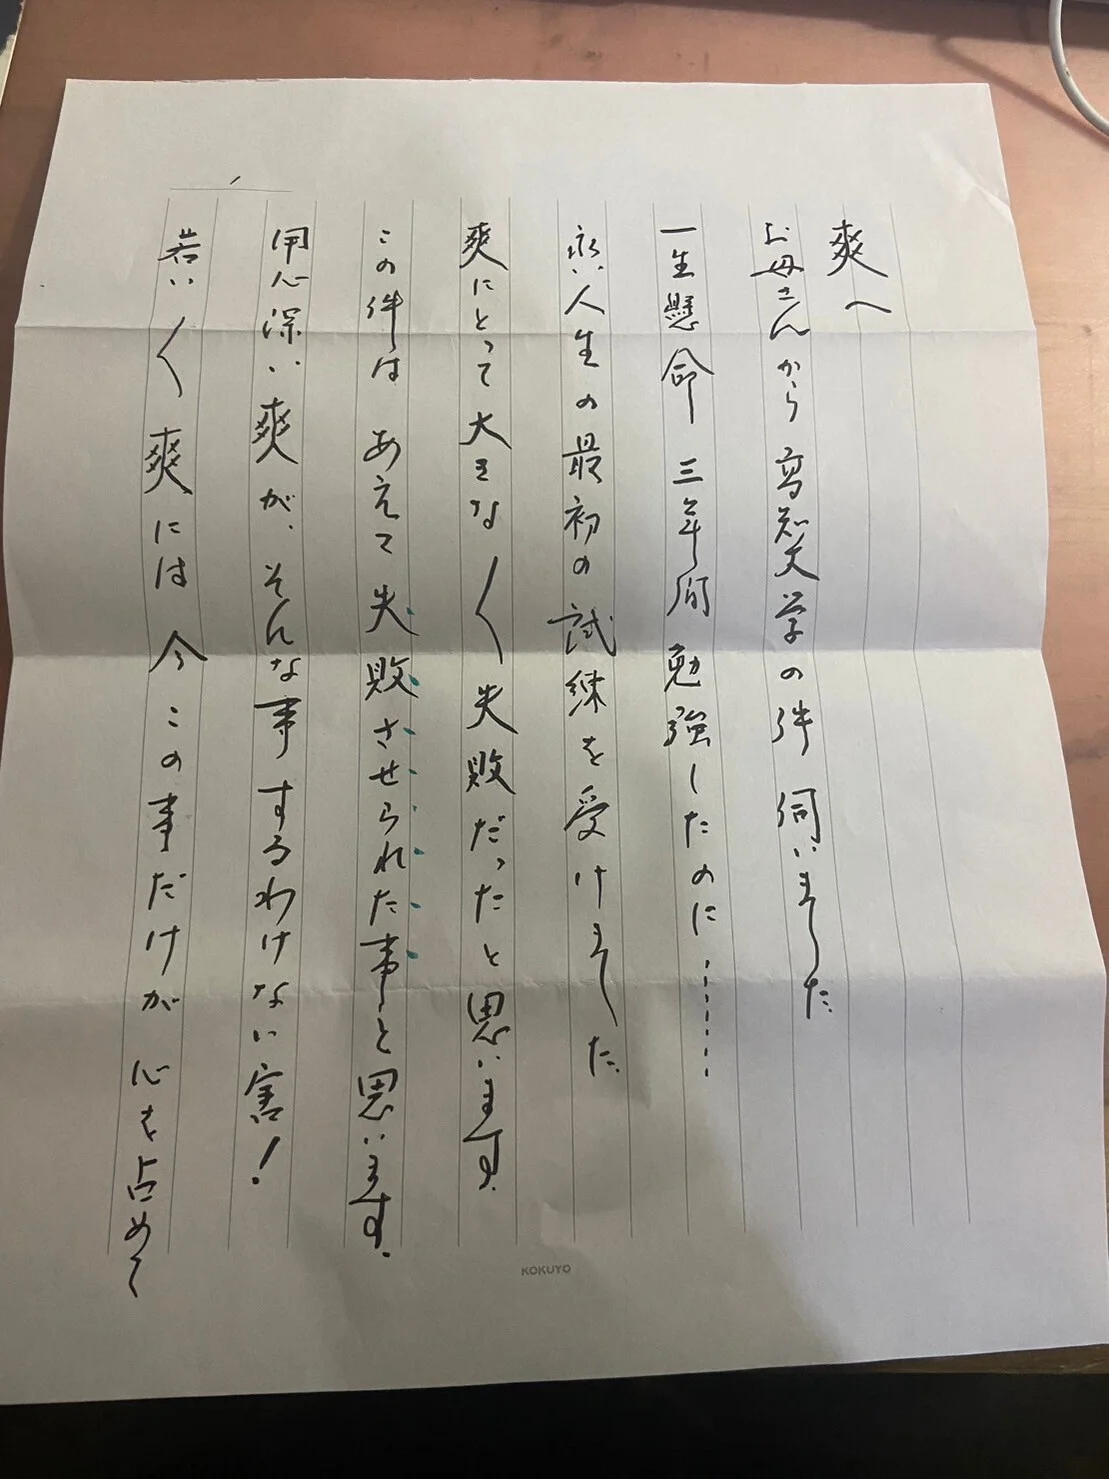 爽へ
お母さんから高知大学の件 伺いました
一生懸命 三年間 勉強したのに………
永い人生の最初の試練を受けました
爽にとって大きな〱失敗だったと思います。
この件は あえて失敗させられた事と思います。
用心深い爽が、そんな事するわけない害!
若い〱爽には 今この事だけが 心を占めて
KOKUYO